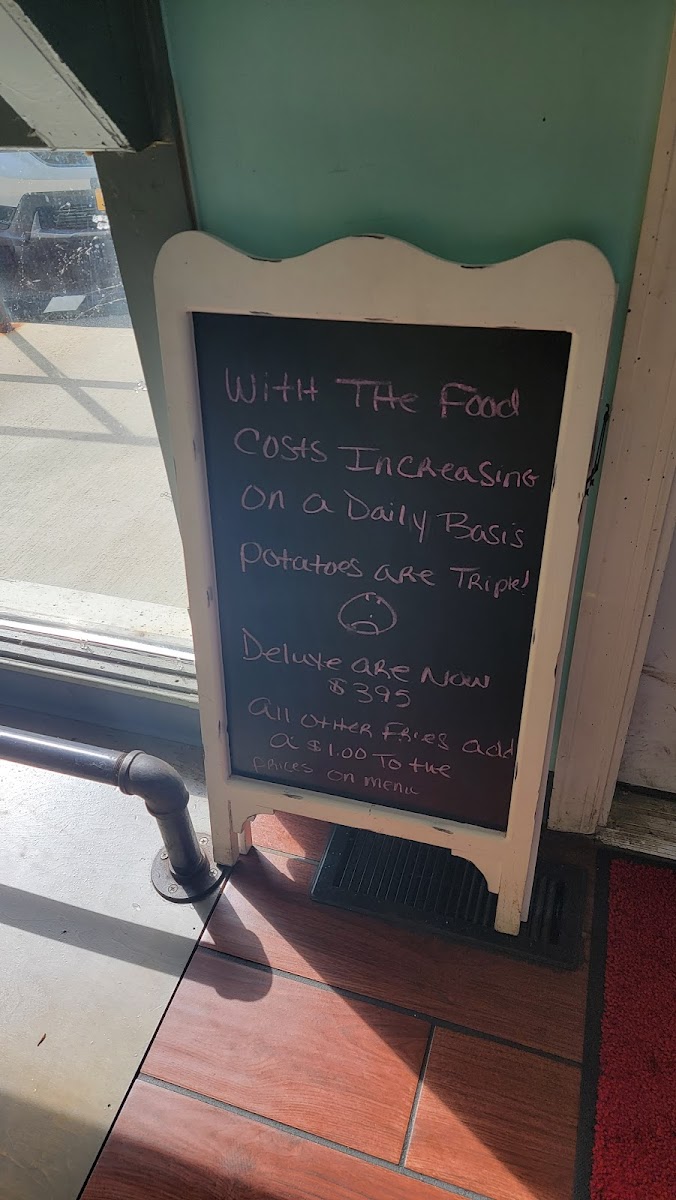 WitH THe Food
Costs Increasing
on a Daily Basis
potatoes are Triple!
Deluxe are Now
$395
all other Fries add
a $1.00 To the
prices on menu